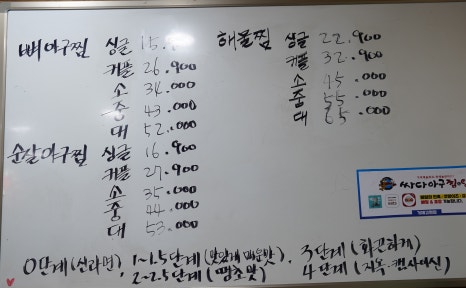 뼈아구찜 싱글 15.
커플 26.900
소 34.000
중 43.000
대 52.000
순살아구찜 싱글 16.900
커플 27.900
소 35.000
중 44.000
대 53.000
해물찜 싱글 22.900
커플 32.900
소 45.000
중 55.000
대 65.000
싸다아구찜
0단계(신라면), 1~1.5단계(맛있게 매운맛), 3단계(화끈하게)
2~2.5단계(땡초맛) 4단계(지옥·캡사이신)